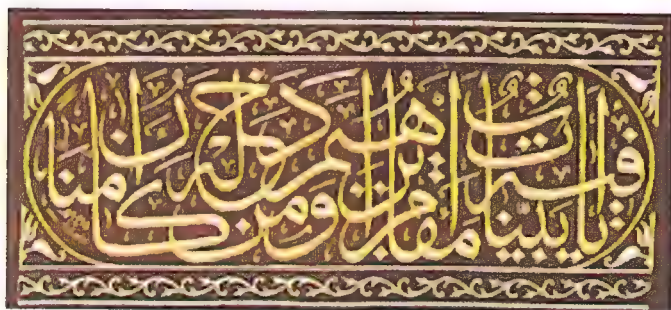 فيه آيات بينات مقام إبراهيم ومن دخله كان آمنا